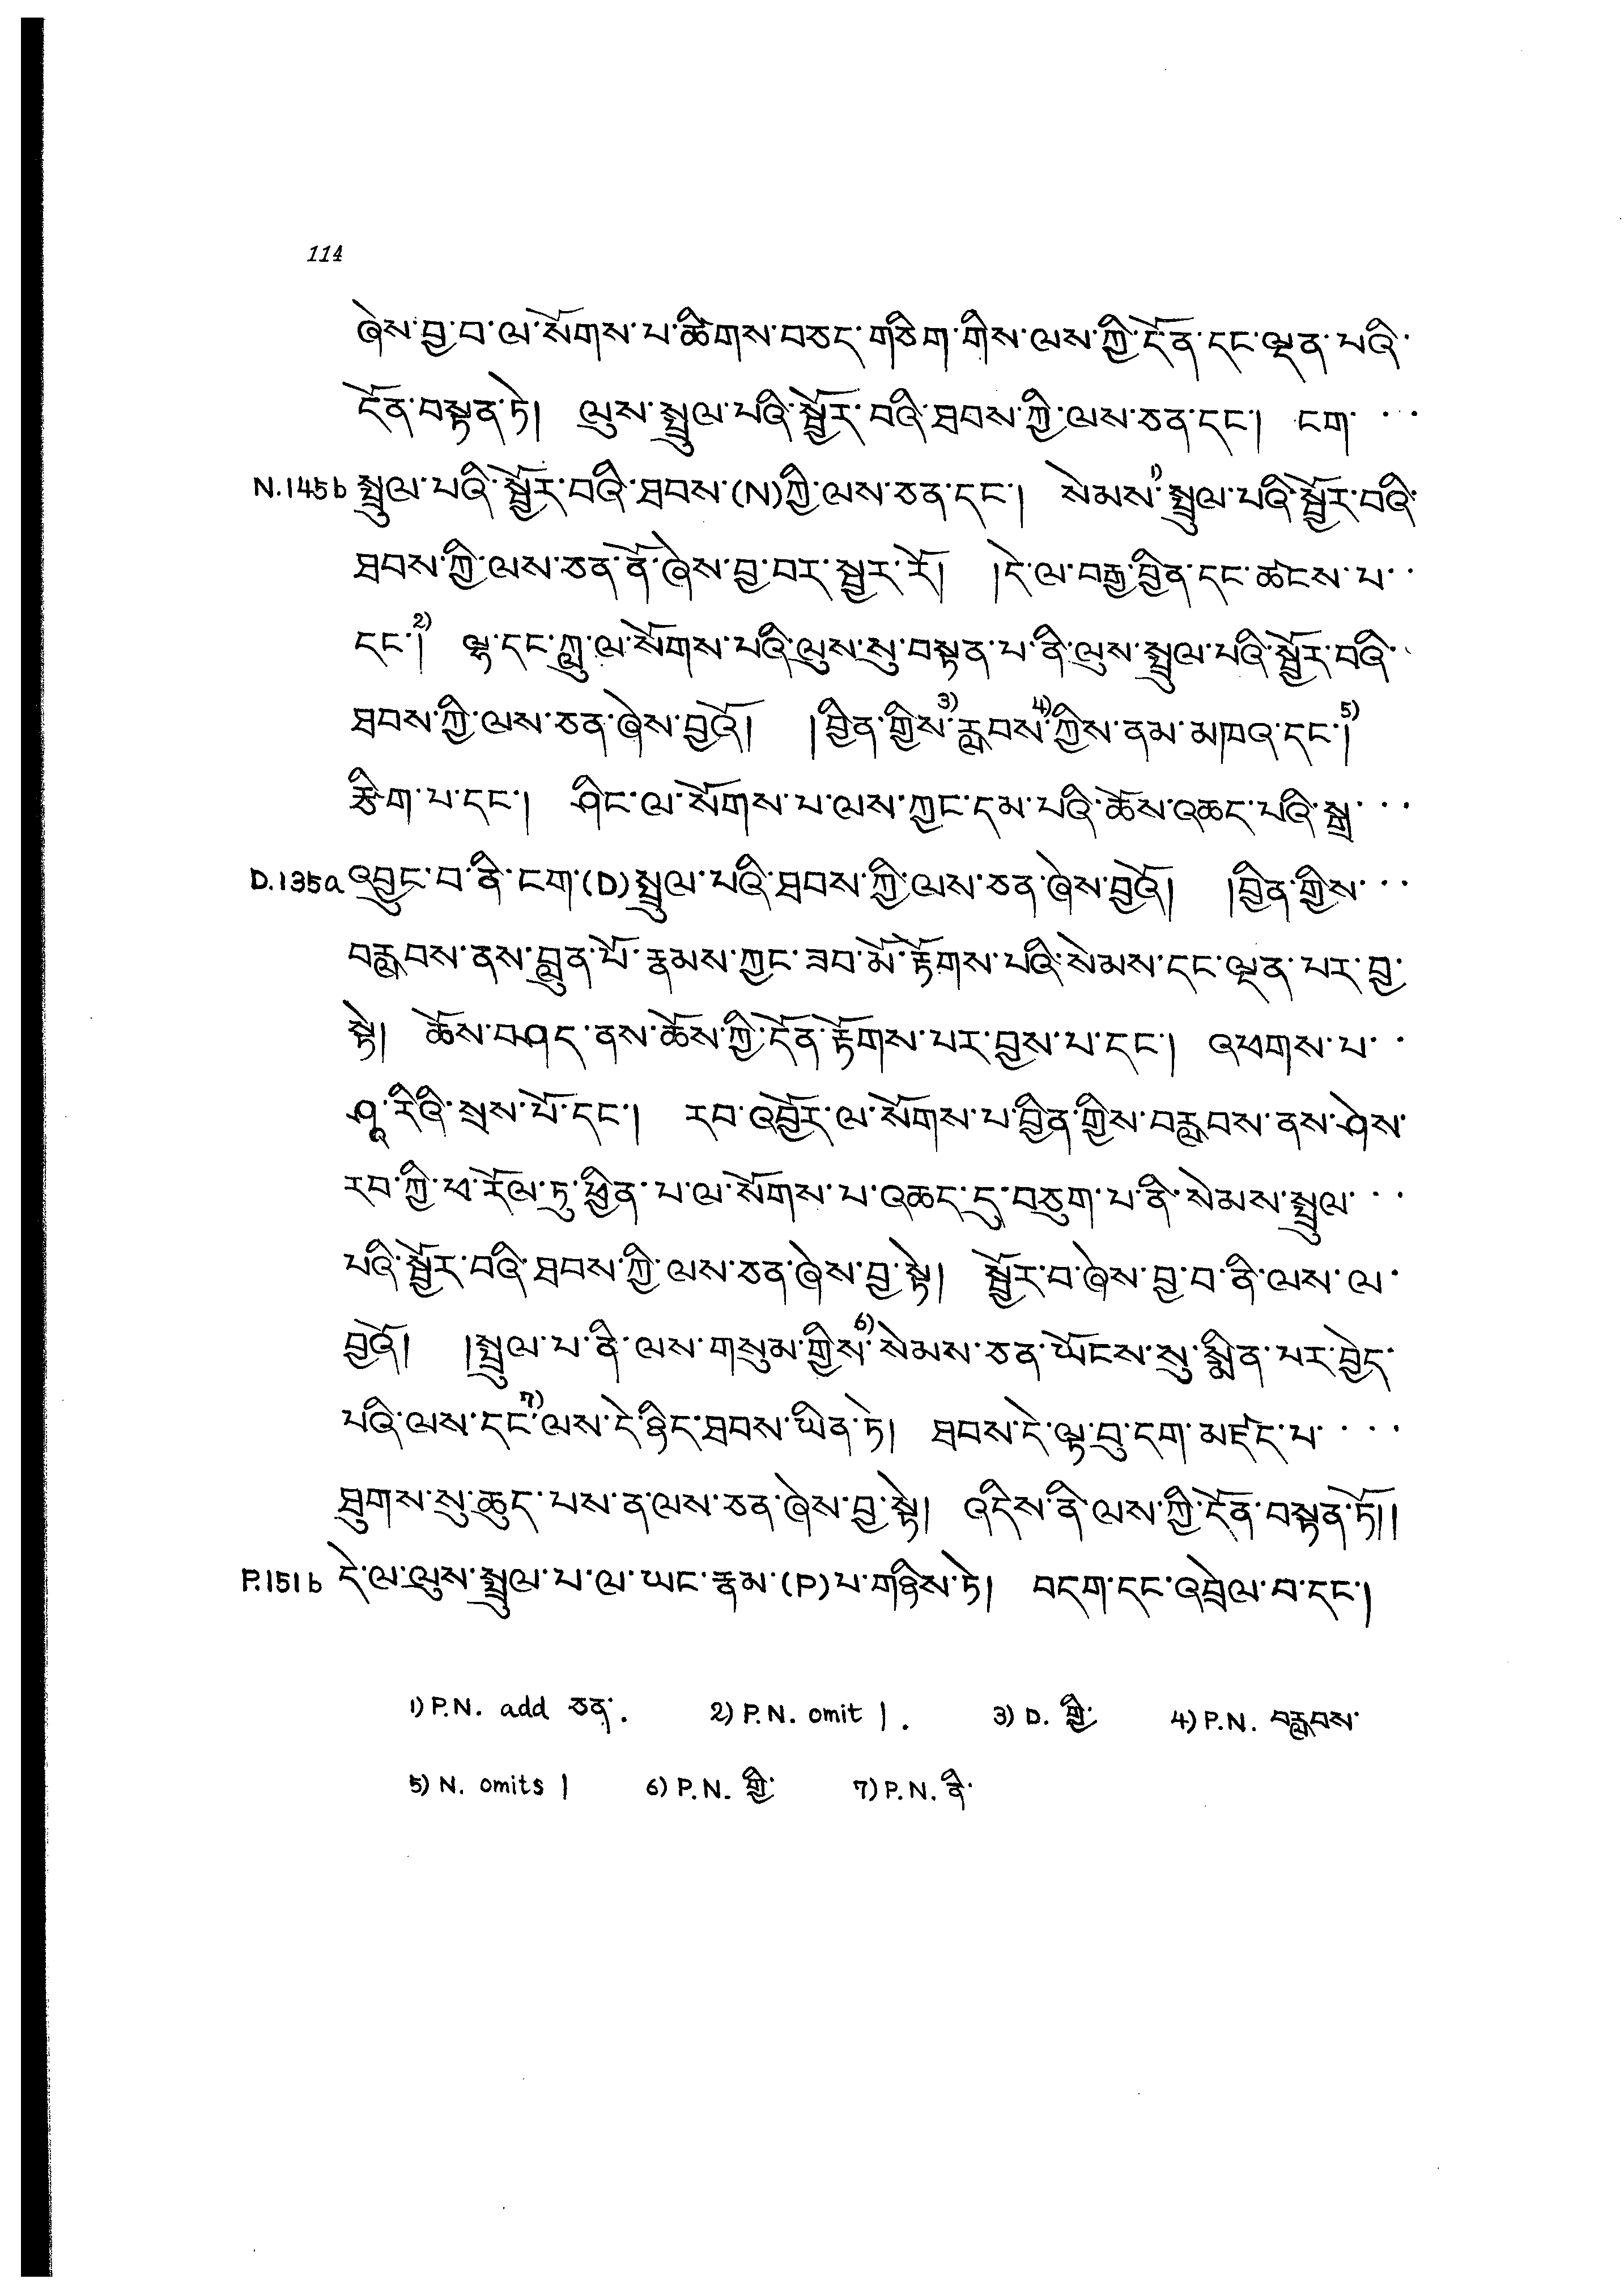 114
ཞེས་བྱ་བ་ལ་སོགས་པ་ཚིགས་བཅད་གཅིག་གིས་ལས་ཀྱི་དོན་དང་ལྡན་པའི་
དོན་བསྟན་ཏེ། ལུས་སྤྲུལ་པའི་སྦྱོར་བའི་ཐབས་ཀྱི་ལས་ཅན་དང་། ངག་ ···
N.145b སྤྲུལ་པའི་སྦྱོར་བའི་ཐབས་(N)ཀྱི་ལས་ཅན་དང་། སེམས་1)སྤྲུལ་པའི་སྦྱོར་བའི་
ཐབས་ཀྱི་ལས་ཅན་ནོ་ཞེས་བྱ་བར་སྦྱར་རོ། །དེ་ལ་བརྒྱ་བྱིན་དང་ཚངས་པ་··
དང་།2) ལྷ་དང་ཀླུ་ལ་སོགས་པའི་ལུས་སུ་བསྟན་པ་ནི་ལུས་སྤྲུལ་པའི་སྦྱོར་བའི་
ཐབས་ཀྱི་ལས་ཅན་ཞེས་བྱའོ། །བྱིན་གྱིས་3)རླབས་4)ཀྱིས་ནམ་མཁའ་དང་།5)
རྩིག་པ་དང་། ཤིང་ལ་སོགས་པ་ལས་ཀྱང་དམ་པའི་ཆོས་འཆད་པའི་སྒྲ་···
D.135a འབྱུང་བ་ནི་ངག་(D)སྤྲུལ་པའི་ཐབས་ཀྱི་ལས་ཅན་ཞེས་བྱའོ། །བྱིན་གྱིས་···
བརླབས་ནས་བླུན་པོ་རྣམས་ཀྱང་ཟབ་མོ་རྟོགས་པའི་སེམས་དང་ལྡན་པར་བྱ་
སྟེ། ཆོས་བཤད་ནས་ཆོས་ཀྱི་དོན་རྟོགས་པར་བྱས་པ་དང་། འཕགས་པ་··
ཤཱ་རིའི་སྲས་པོ་དང་། རབ་འབྱོར་ལ་སོགས་པ་བྱིན་གྱིས་བརླབས་ནས་ཤེས་
རབ་ཀྱི་ཕ་རོལ་ཏུ་ཕྱིན་པ་ལ་སོགས་པ་འཆད་དུ་བཅུག་པ་ནི་སེམས་སྤྲུལ་···
པའི་སྦྱོར་བའི་ཐབས་ཀྱི་ལས་ཅན་ཞེས་བྱ་སྟེ། སྦྱོར་བ་ཞེས་བྱ་བ་ནི་ལས་ལ་
བྱའོ། །སྤྲུལ་པ་ནི་ལས་གསུམ་གྱིས་6)སེམས་ཅན་ཡོངས་སུ་སྨིན་པར་བྱེད་
པའི་ལས་དང་7)ལས་དེ་ཉིད་ཐབས་ཡིན་ཏེ། ཐབས་དེ་ལྟ་བུ་དག་མཛད་པ་····
ཐུགས་སུ་ཆུད་པས་ན་ལས་ཅན་ཞེས་བྱ་སྟེ། འདིས་ནི་ལས་ཀྱི་དོན་བསྟན་ཏོ།།
P.151b དེ་ལ་ལུས་སྤྲུལ་པ་ལ་ཡང་རྣམ་(P)པ་གཉིས་ཏེ། བདག་དང་འབྲེལ་བ་དང་།
1) P.N. add ཅན་. 2) P.N. omit །. 3) D. གྱི་ 4) P.N. བརླབས་
5) N. omits । 6) P.N. གྱི་ 7) P.N. ནི་